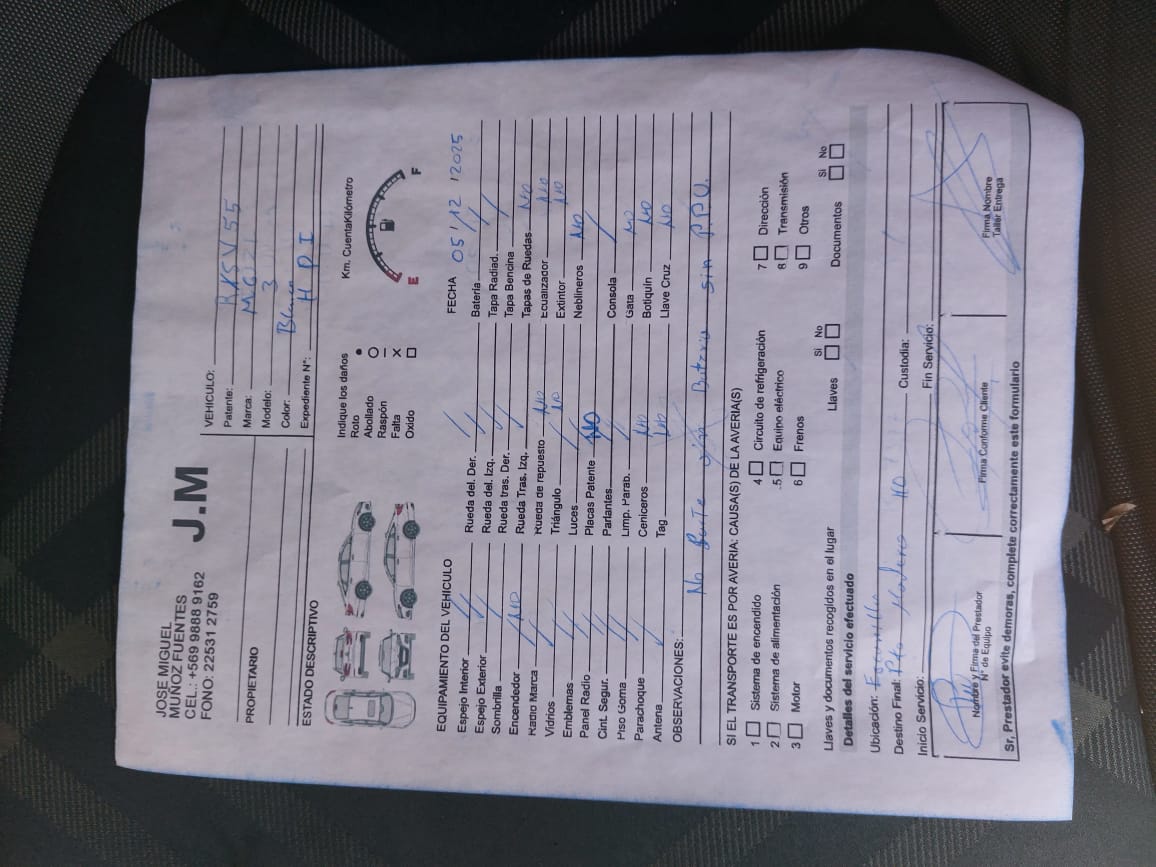 JOSE MIGUEL
MUÑOZ FUENTES
CEL.: +569 9888 9162
FONO: 22531 2759
J.M
PROPIETARIO
VEHICULO:
Patente: RKSV55
Marca: MG
Modelo: 3
Color:
Expediente N°: H P I
ESTADO DESCRIPTIVO
Indique los daños
Roto
Abollado
Raspón
Falta X
Oxido
Km. CuentaKilómetro
E F
EQUIPAMIENTO DEL VEHICULO
FECHA 05/12/2025
Espejo Interior / Rueda del. Der. / Batería /
Espejo Exterior / Rueda del. Izq. / Tapa Radiad. /
Sombrilla / Rueda tras. Der. / Tapa Bencina /
Encendedor NO Rueda Tras. Izq. / Tapas de Ruedas NO
Radio Marca / Rueda de repuesto NO Ecualizador NO
Vidrios / Triángulo NO Extintor NO
Emblemas / Luces / Neblineros NO
Panel Radio / Placas Patente NO
Cint. Segur. / Parlantes / Consola /
Piso Goma / Limp. Parab. / Gata NO
Parachoque / Ceniceros NO Botiquín NO
Antena / Tag NO Llave Cruz NO
OBSERVACIONES:
No sin P.P.U.
SI EL TRANSPORTE ES POR AVERIA: CAUSA(S) DE LA AVERIA(S)
1 Sistema de encendido 4 Circuito de refrigeración 7 Dirección
2 Sistema de alimentación 5 Equipo eléctrico 8 Transmisión
3 Motor 6 Frenos 9 Otros
Llaves y documentos recogidos en el lugar Llaves Si No Documentos Si No
Detalles del servicio efectuado
Ubicación:
Destino Final: Pto Madero Custodia:
Inicio Servicio: Fin Servicio:
Nombre y Firma del Prestador
N° de Equipo
Firma Conforme Cliente
Firma Nombre
Taller Entrega
Sr, Prestador evite demoras, complete correctamente este formulario